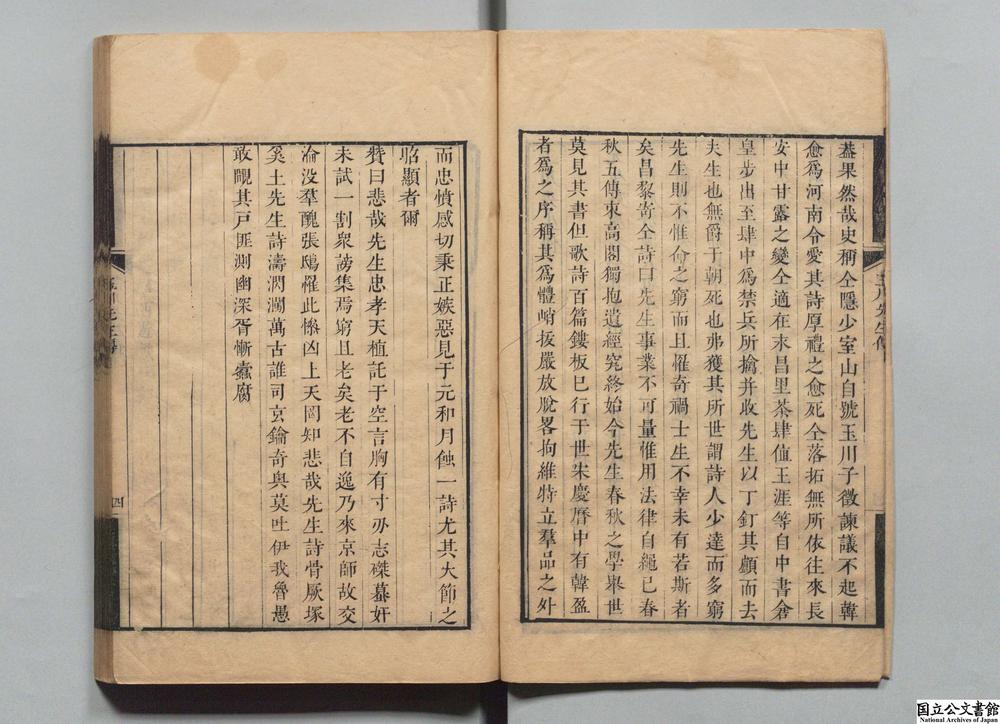 葢果然哉史稱仝隱少室山自號玉川子徵諫議不起韓
愈爲河南令愛其詩厚禮之愈死仝落拓無所依往來長
安中甘露之變仝適在來昌里茶肆值王涯等自中書倉
皇步出至肆中爲禁兵所擒并收先生以丁釘其顱而去
夫生也無爵于朝死也弗獲其所世謂詩人少達而多窮
先生則不惟命之窮而且罹奇禍士生不幸未有若斯者
矣昌黎寄仝詩曰先生事業不可量惟用法律自繩已春
秋五傳束高閣獨抱遺經究終始今先生春秋之學舉世
莫見其書但歌詩百篇鏤板巳行于世宋慶曆中有韓盈
者爲之序稱其爲體峭拔嚴放脫畧拘維特立羣品之外
而忠憤感切秉正嫉惡見于元和月蝕一詩尤其大節之
昭顯者爾
贊曰悲哉先生忠孝天植託于空言胸有寸刃志磔蟇奸
未試一割衆謗集焉窮且老矣老不自逸乃來京師故交
淪没羣醜張鴟罹此慘凶上天罔知悲哉先生詩骨厥塚
奚土先生詩濤閃瀾萬古誰司玄鑰奇與莫吐伊我魯愚
敢覸其戸匪測幽深胥慚蠹腐
玉川先生傳
四
国立公文書館
National Archives of Japan